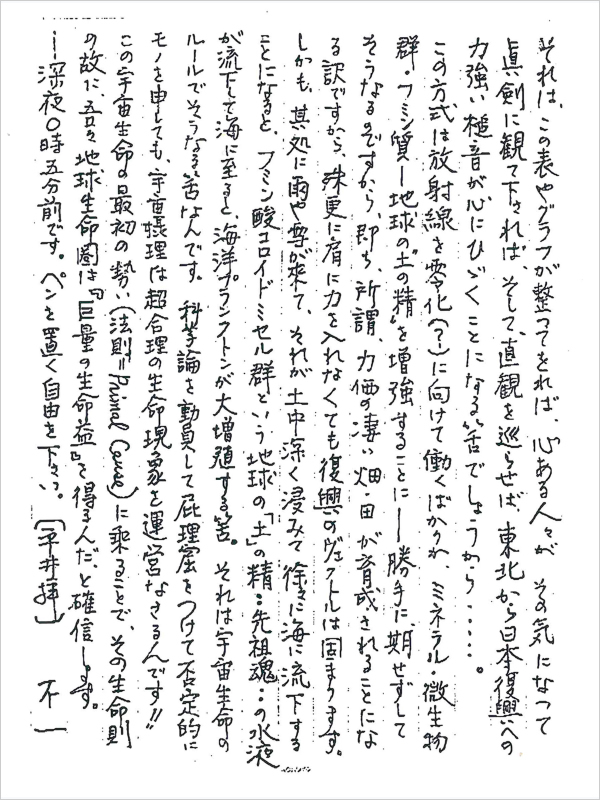 それは、この表やグラフが整つてをれば、心ある人々が その気になつて
眞剣に観て下されば、そして、直観を巡らせば、東北から日本復興への
力強い槌音が心にひゞくことになる筈でしょうから‥‥‥。
この方式は放射線を零化(?)に向けて働くばかりか、ミネラル・微生物
群・フミン質―地球の"土の精"を増強することに―勝手に、期せずして
そうなるのですから、即ち、所謂、力価の凄い畑・田が育成されることにな
る訳ですから、殊更に肩に力を入れなくても復興のヴェクトルは固まります。
しかも、其処に雨や雪が来て、それが土中深く浸みて 徐々に海に流下する
ことになると、フミン酸コロイドミセル群という地球の「土」の精‥先祖魂‥の水液
が流下して海に至ると、海洋プランクトンが大増殖する筈。 それは宇宙生命の
ルールでそうなる筈なんです。 科学論を動員して屁理窟をつけて否定的に
モノを申しても、宇宙摂理は超合理の生命現象を運営なさるんです!!
この宇宙生命の最初の勢い(法則=Primal Cause)に乗ることで、その生命則
の故に、吾々地球生命圏は『巨量の生命益』を得るんだ、と確信します。
―深夜0時五分前です。ペンを置く自由を下さい。〔平井拝〕 不一